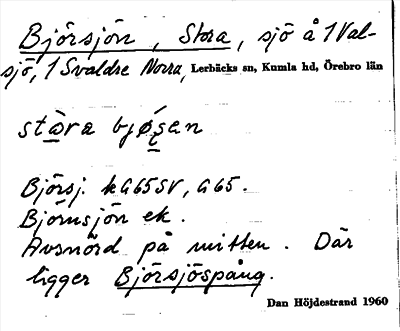 Björsjön, Stora, sjö å 1 Val-
sjö, 1 Svaldre Norra, Lerbäcks sn, Kumla hd, Örebro län
stɑ̀ra bjǿʂan
Björsj. kG65SV, G65.
Björnsjön ek.
Avsnörd på mitten. Där
ligger Björsjöspång.
Dan Höjdestrand 1960